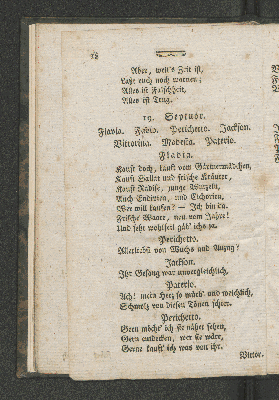 78
Aber, weil's Zeit ist,
Laßt euch noch warnen;
Alles ist Falschheit,
Alles ist Trug.
19. Septuor.
Flavia. Fabio. Perichetto. Jackson.
Vittorina. Modesta. Paterio.
Flavia.
Kauft doch, kauft vom Gärtnermädchen,
Kauft Sallat und frische Kräuter,
Kauft Radise, junge Wurzeln,
Auch Endivien, und Cichorien,
Wer will kaufen? — Ich bin da.
Frische Waare, neu vom Jahre!
Und sehr wohlfeil gäb' ichs ja.
Perichetto.
Allerliebst von Wuchs und Anzug!
Jackson.
Ihr Gesang war unvergleichlich,
Paterio.
Ach! mein Herz so mürb' und weichlich,
Schmolz von diesen Tönen schier.
Perichetto.
Gern möcht' ich sie näher sehen,
Gern entdecken, wer sie wäre,
Gerne kauft' ich was von ihr.
Vittor-